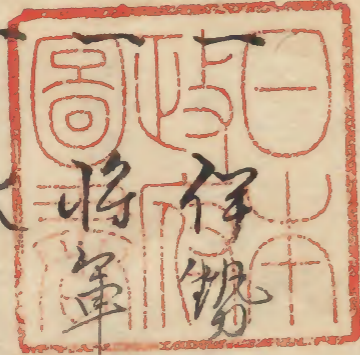 日本
政府
圖書
一 伊勢
一 将軍